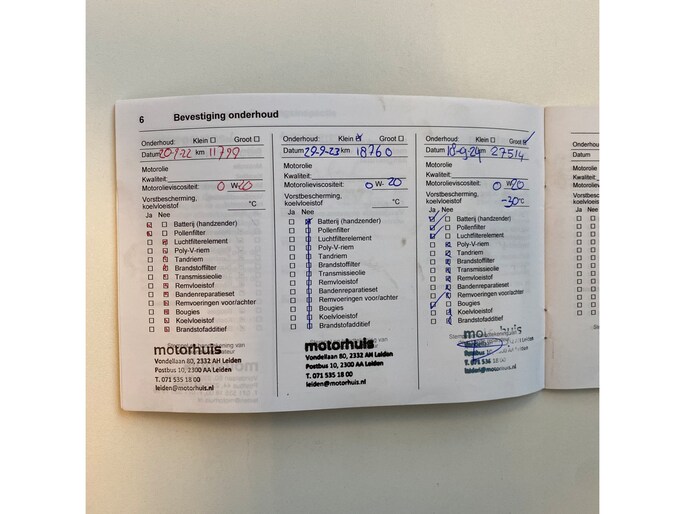 6 Bevestiging onderhoud
Onderhoud: Klein Groot
Datum 20-9-22 km 11799
Motorolie
Kwaliteit:
Motorolieviscositeit: 0 W-20
Vorstbescherming,
koelvloeistof °C
Ja Nee
Batterij (handzender)
Pollenfilter
Luchtfilterelement
Poly-V-riem
Tandriem
Brandstoffilter
Transmissieolie
Remvloeistof
Bandenreparatieset
Remvoeringen voor/achter
Bougies
Koelvloeistof
Brandstofadditief
motorhuis
Vondellaan 80, 2332 AH Leiden
Postbus 10, 2300 AA Leiden
T. 071 535 18 00
leiden@motorhuis.nl
Onderhoud: Klein Groot
Datum 29-9-23 km 18760
Motorolie
Kwaliteit:
Motorolieviscositeit: 0 W-20
Vorstbescherming,
koelvloeistof °C
Ja Nee
Batterij (handzender)
Pollenfilter
Luchtfilterelement
Poly-V-riem
Tandriem
Brandstoffilter
Transmissieolie
Remvloeistof
Bandenreparatieset
Remvoeringen voor/achter
Bougies
Koelvloeistof
Brandstofadditief
motorhuis
Vondellaan 80, 2332 AH Leiden
Postbus 10, 2300 AA Leiden
T. 071 535 18 00
leiden@motorhuis.nl
Onderhoud: Klein Groot
Datum 18-9-24 km 27514
Motorolie
Kwaliteit:
Motorolieviscositeit: 0 W-20
Vorstbescherming,
koelvloeistof -30°C
Ja Nee
Batterij (handzender)
Pollenfilter
Luchtfilterelement
Poly-V-riem
Tandriem
Brandstoffilter
Transmissieolie
Remvloeistof
Bandenreparatieset
Remvoeringen voor/achter
Bougies
Koelvloeistof
Brandstofadditief
motorhuis
Postbus 10, AA Leiden
T. 071 535 18 00
leiden@motorhuis.nl
Onderhoud:
Datum
Motorolie
Kwaliteit:
Ja